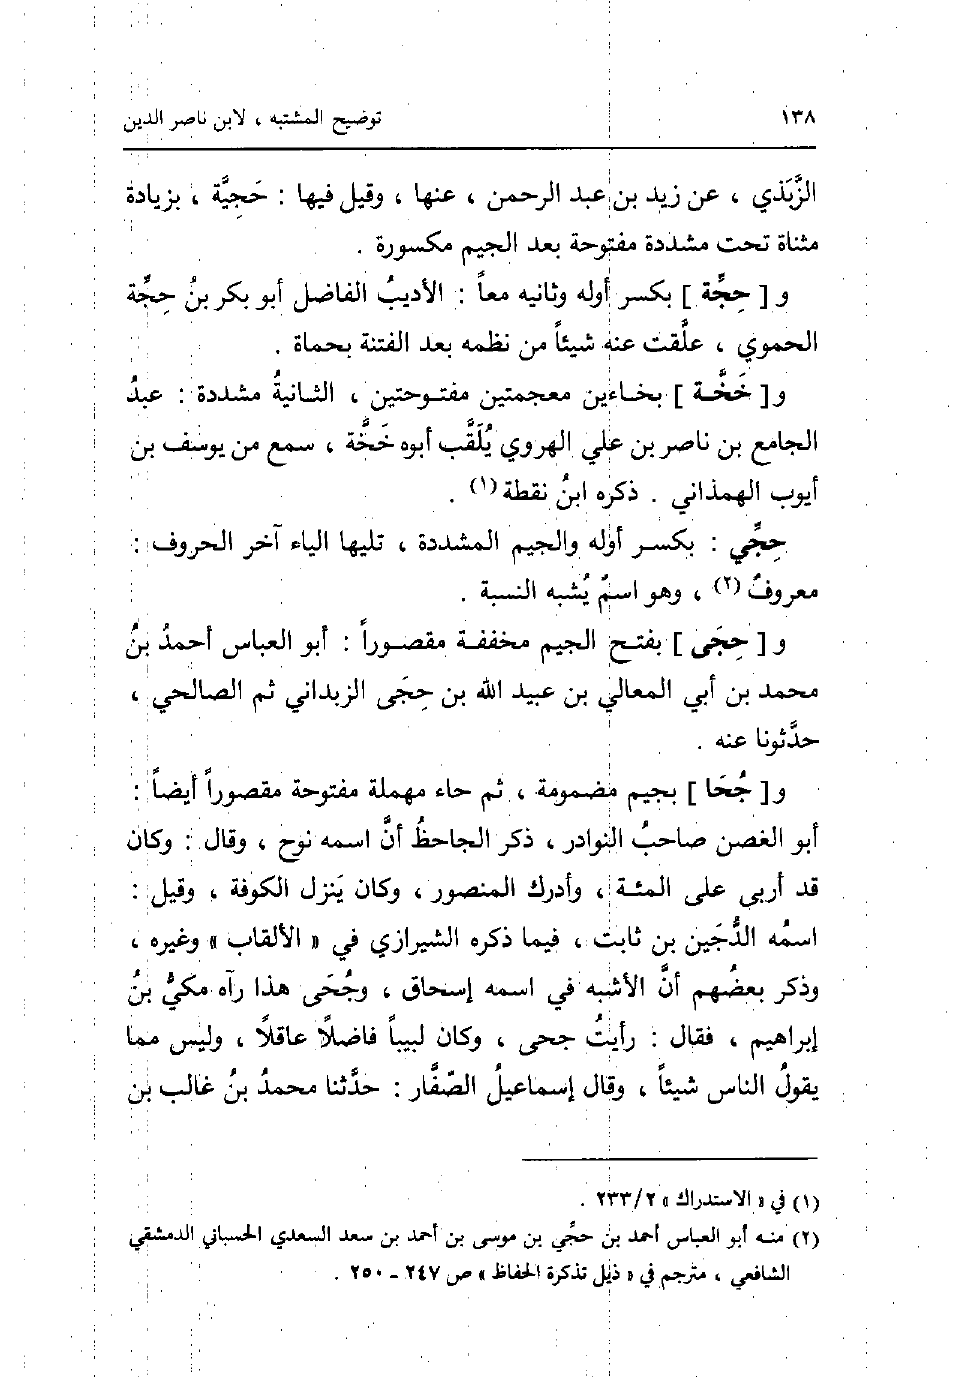 ١٣٨ توضيح المشتبه ، لابن ناصر الدين
الرَّبَذي ، عن زيد بن عبد الرحمن ، عنها ، وقيل فيها : حَجِيَّة ، بزيادة
مثناة تحت مشددة مفتوحة بعد الجيم مكسورة .
و [ حِجِّة ] بكسر أوله وثانيه معاً : الأديبُ الفاضل أبو بكر بنُ حِجِّة
الحموي ، علَّقت عنه شيئاً من نظمه بعد الفتنة بحماة .
و [ خَخَّة ] بخاءين معجمتين مفتوحتين ، الثانيةُ مشددة : عبدُ
الجامع بن ناصر بن علي الهروي يُلَقَّب أبوه خَخَّة ، سمع من يوسف بن
أيوب الهمذاني . ذكره ابنُ نقطة (١) .
حِجِّي : بكسر أوله والجيم المشددة ، تليها الياء آخر الحروف :
معروفٌ (٢) ، وهو اسمٌ يُشبه النسبة .
و [ حِجَى ] بفتح الجيم مخففة مقصوراً : أبو العباس أحمدُ بنُ
محمد بن أبي المعالي بن عبيد الله بن حِجَى الزبداني ثم الصالحي ،
حدَّثونا عنه .
و [ جُحَا ] بجيم مضمومة ، ثم حاء مهملة مفتوحة مقصوراً أيضاً :
أبو الغصن صاحبُ النوادر ، ذكر الجاحظُ أنَّ اسمه نوح ، وقال : وكان
قد أربى على المئة ، وأدرك المنصور ، وكان يَنزل الكوفة ، وقيل :
اسمُه الدُّجَين بن ثابت ، فيما ذكره الشيرازي في « الألقاب » وغيره ،
وذكر بعضُهم أنَّ الأشبه في اسمه إسحاق ، وجُحَى هذا رآه مكيُّ بنُ
إبراهيم ، فقال : رأيتُ جحى ، وكان لبيباً فاضلًا عاقلًا ، وليس مما
يقولُ الناس شيئاً ، وقال إسماعيلُ الصَّفَّار : حدَّثنا محمدُ بنُ غالب بن
(١) في « الاستدراك » ٢٣٣/٢ .
(٢) منه أبو العباس أحمد بن حجِّي بن موسى بن أحمد بن سعد السعدي الحسباني الدمشقي
الشافعي ، مترجم في « ذيل تذكرة الحفاظ » ص ٢٤٧ - ٢٥٠ .